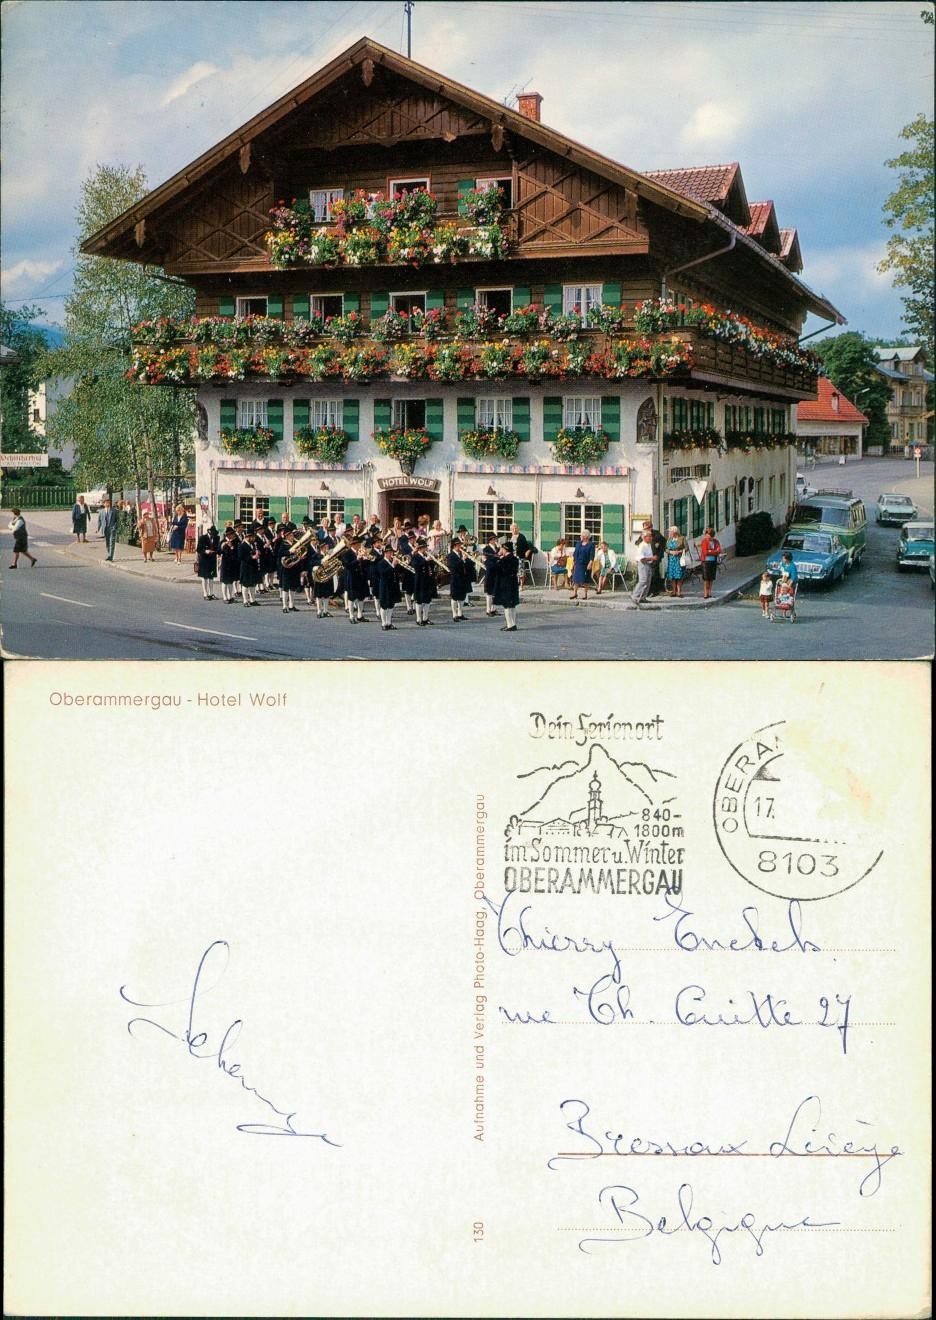 HOTEL WOLF
Oberammergau - Hotel Wolf
Dein Ferienort
840-
1800m
im Sommer u. Winter
OBERAMMERGAU
OBERAM
17.
8103
Aufnahme und Verlag Photo-Haag, Oberammergau
130
Thierry
rue Th. Cuitte 27
Bressoux Liège
Belgique